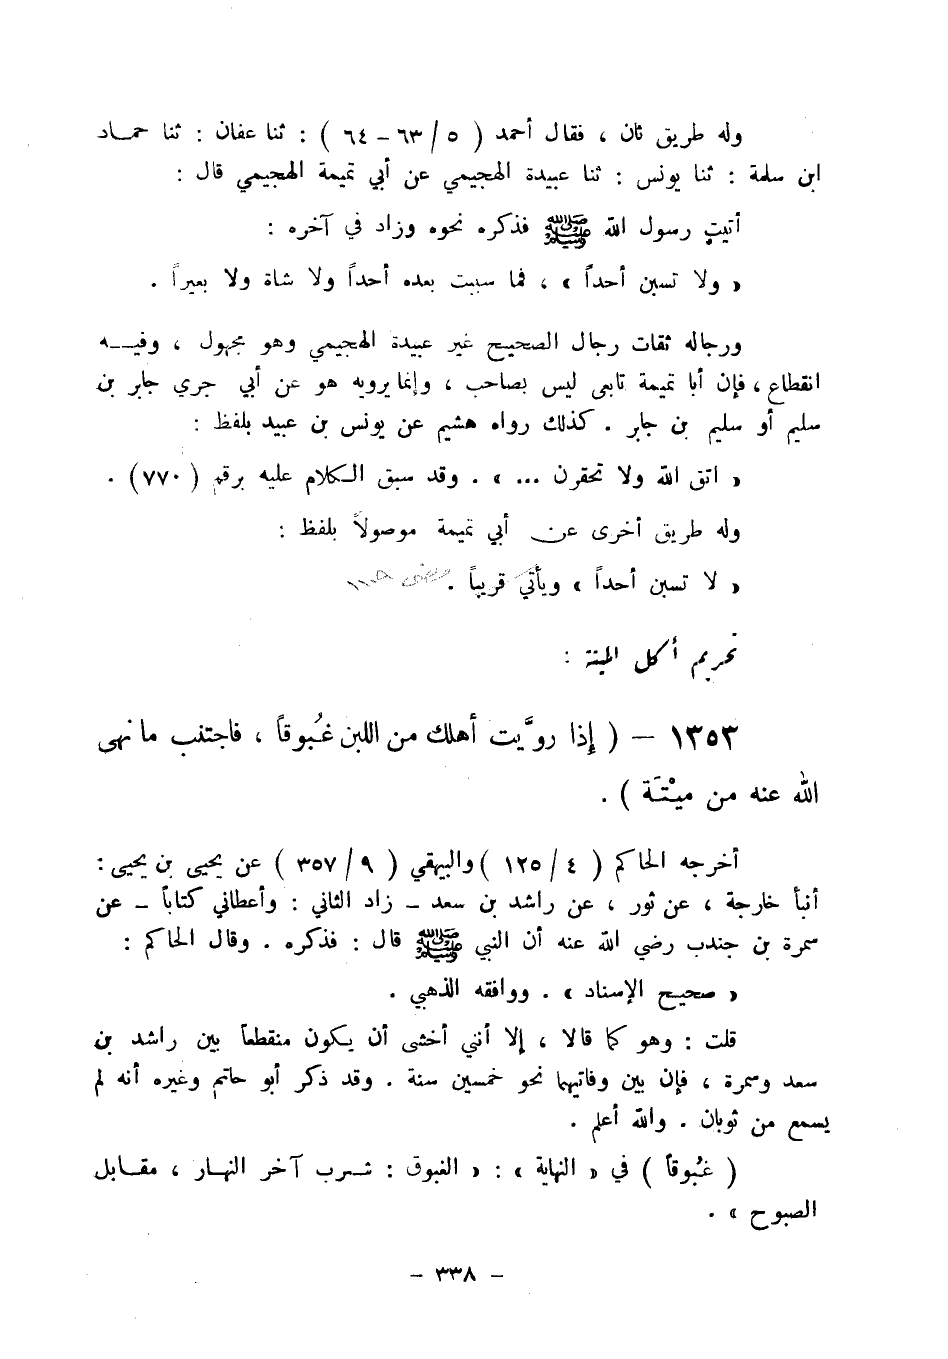 وله طريق ثان ، فقال أحمد ( ٥ / ٦٣ – ٦٤ ) : ثنا عفان : ثنا حمــاد
ابن سلمة : ثنا يونس : ثنا عبيدة الهجيمي عن أبي تميمة الهجيمي قال :
أتيت رسول الله ﷺ فذكره نحوه وزاد في آخره :
« ولا تسبن أحداً » ، فما سببت بعده أحداً ولا شاة ولا بعيراً .
ورجاله ثقات رجال الصحيح غير عبيدة الهجيمي وهو مجهول ، وفيــه
انقطاع ، فإن أبا تميمة تابعي ليس بصاحب ، وإنما يرويه هو عن أبي جري جابر بن
سليم أو سليم بن جابر . كذلك رواه هشيم عن يونس بن عبيد بلفظ :
« اتق الله ولا تحقرن ... » . وقد سبق الكلام عليه برقم ( ٧٧٠ ) .
وله طريق أخرى عن أبي تميمة موصولاً بلفظ :
« لا تسبن أحداً » ويأتي قريباً .
تحريم أكل الميتة :
١٣٥٣ – ( إذا روَّيت أهلك من اللبن غَبُوقاً ، فاجتنب ما نهى
الله عنه من ميْتَة ) .
أخرجه الحاكم ( ٤ / ١٢٥ ) والبيهقي ( ٩ / ٣٥٧ ) عن يحيى بن يحيى :
أنبأ خارجة ، عن ثور ، عن راشد بن سعد – زاد الثاني : وأعطاني كتاباً – عن
سمرة بن جندب رضي الله عنه أن النبي ﷺ قال : فذكره . وقال الحاكم :
« صحيح الإسناد » . ووافقه الذهبي .
قلت : وهو كما قالا ، إلا أنني أخشى أن يكون منقطعاً بين راشد بن
سعد وسمرة ، فإن بين وفاتيهما نحو خمسين سنة . وقد ذكر أبو حاتم وغيره أنه لم
يسمع من ثوبان . والله أعلم .
( غَبُوقاً ) في « النهاية » : « الغبوق : شرب آخر النهار ، مقـابل
الصبوح » .
– ٣٣٨ –